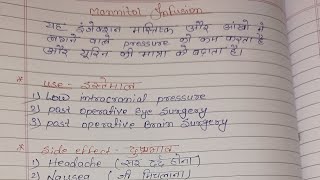 Mannitol Infusion
यह इंजेक्शन मस्तिष्क और आंखो में
बढ़ाने वाले pressure को कम करता है
और यूरिन की मात्रा को बढ़ाता है।
* use - इस्तेमाल
1) Low intracranial pressure
2) past operative eye surgery
3) past operative Brain surgery
* Side effect - दुष्प्रभाव
1) Headache (सर दर्द होना)
2) Nausea (जी मिचलाना)